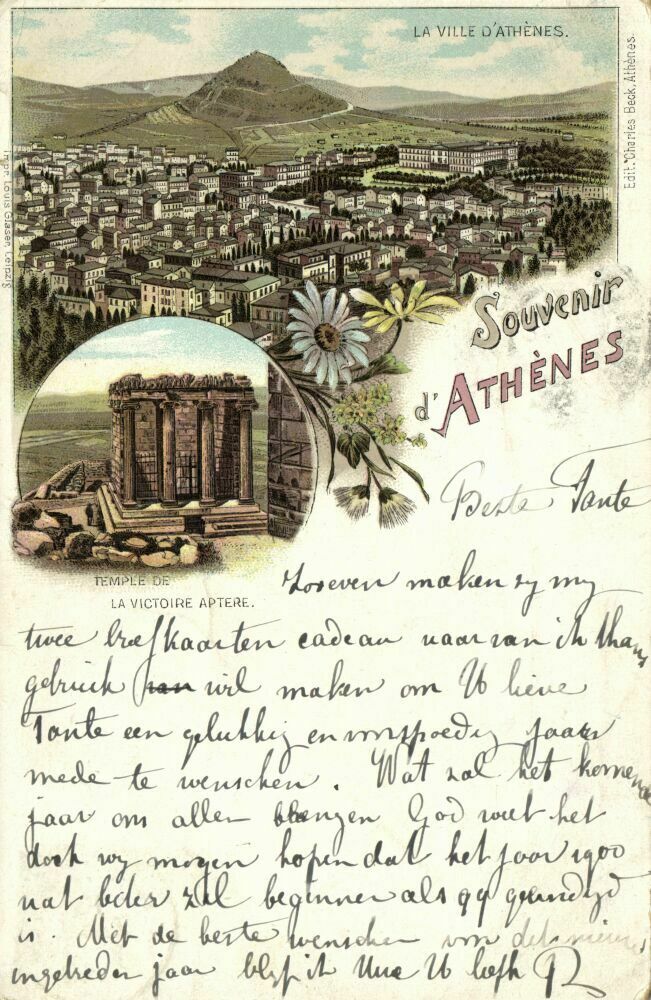 LA VILLE D'ATHÈNES.
Edit. Charles Beck, Athènes.
Impr. Louis Glaser, Leipzig
Souvenir
d'ATHÈNES
TEMPLE DE
LA VICTOIRE APTERE.
Beste Tante
Zoeven maken zy my
twee briefkaarten cadeau waarvan ik thans
gebruik van wil maken om U lieve
Tante een gelukkig en voorspoedig jaar
mede te wenschen. Wat zal het komende
jaar ons allen brengen God weet het
doch wy mogen hopen dat het jaar 1900
wat beter zal beginnen als 99 geeindigd
is. Met de beste wenschen voor het nieuw
ingetreden jaar blyf ik Uwe U liefh